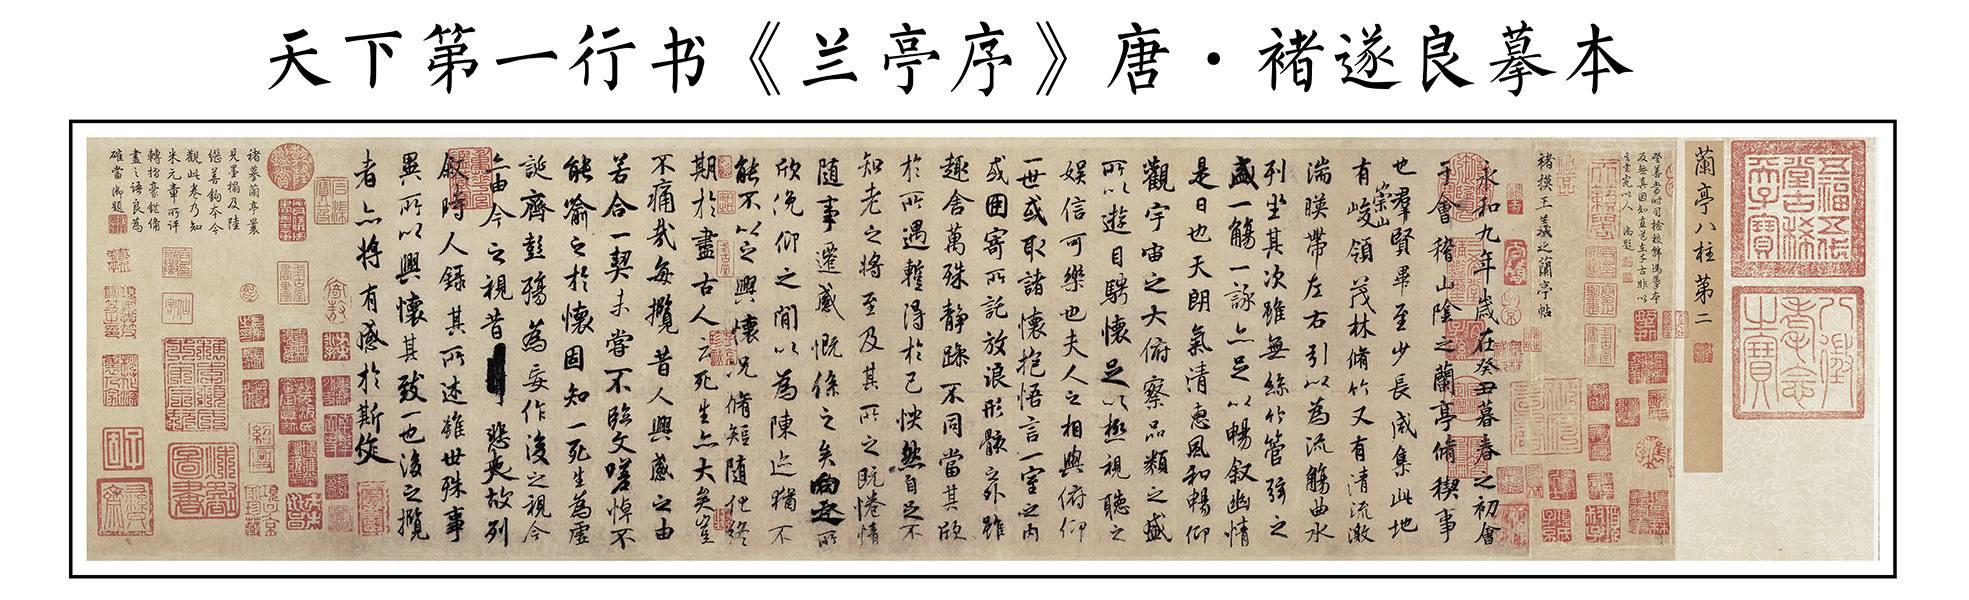 天下第一行书《兰亭序》唐·褚遂良摹本
五福五代堂古稀天子寶
八徵耄念之寶
蘭亭八柱第二
褚摸王羲之蘭亭帖
永和九年歲在癸丑暮春之初會
于會稽山陰之蘭亭脩稧事
也羣賢畢至少長咸集此地
有崇山峻領茂林脩竹又有清流激
湍暎帶左右引以為流觴曲水
列坐其次雖無絲竹管弦之
盛一觴一詠亦足以暢敘幽情
是日也天朗氣清惠風和暢仰
觀宇宙之大俯察品類之盛
所以遊目騁懷足以極視聽之
娛信可樂也夫人之相與俯仰
一世或取諸懷抱悟言一室之內
或因寄所託放浪形骸之外雖
趣舍萬殊靜躁不同當其欣
於所遇蹔得於己怏然自足不
知老之將至及其所之既惓情
隨事遷感慨係之矣向之所
欣俛仰之間以為陳迹猶不
能不以之興懷況脩短隨化終
期於盡古人云死生亦大矣豈
不痛哉每攬昔人興感之由
若合一契未嘗不臨文嗟悼不
能喻之於懷固知一死生為虛
誕齊彭殤為妄作後之視今
亦由今之視昔悲夫故列
敘時人錄其所述雖世殊事
異所以興懷其致一也後之攬
者亦將有感於斯作
褚摹蘭亭最
見墨搨及陸
繼善鈎本今
觀此卷乃知
米元章所評
轉摺豪鋩備
盡之語良為
確當御題